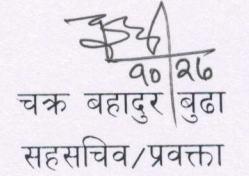 १०|२७
चक्र बहादुर बुढा
सहसचिव/प्रवक्ता